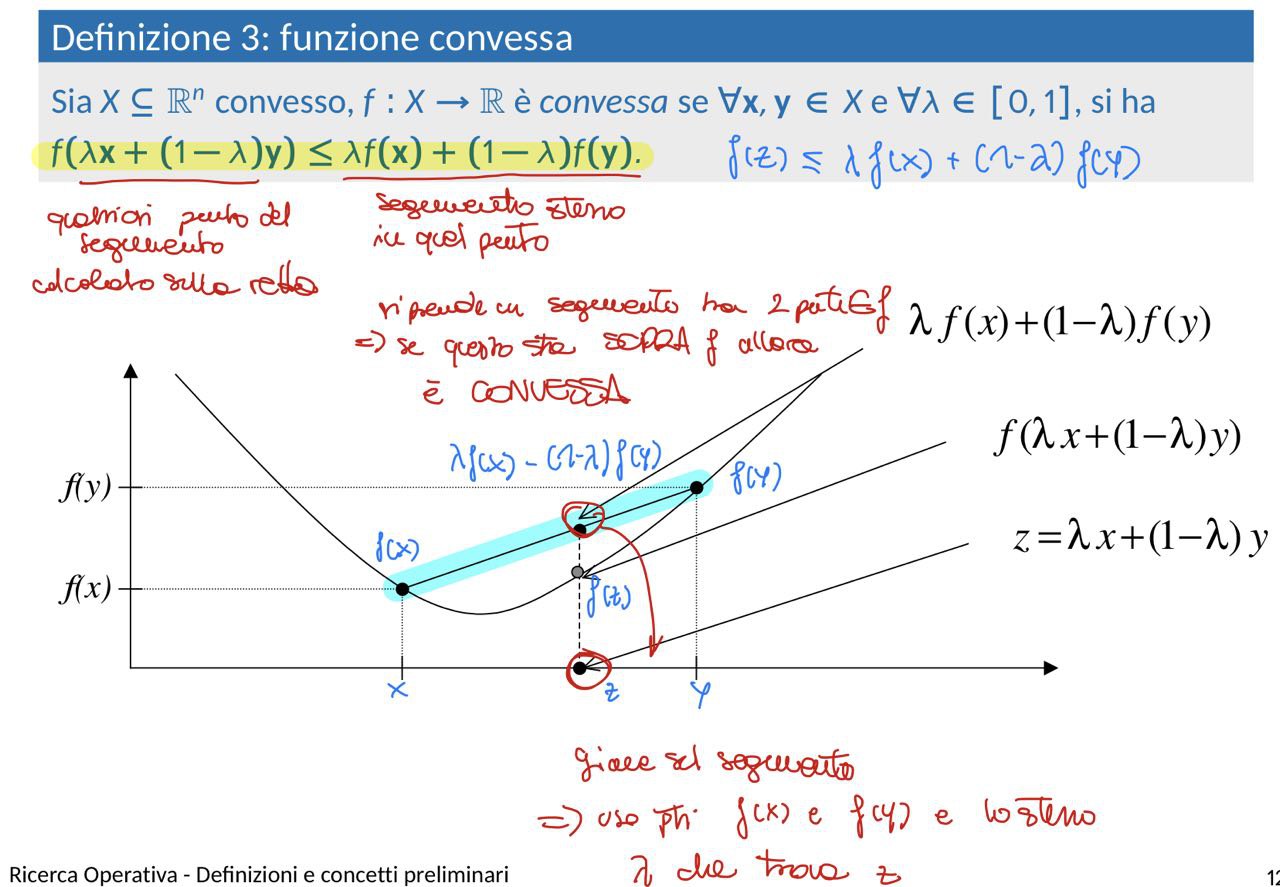 Definizione 3: funzione convessa
Sia X ⊆ ℝⁿ convesso, f : X → ℝ è convessa se ∀x, y ∈ X e ∀λ ∈ [0, 1], si ha
f(λx + (1 − λ)y) ≤ λf(x) + (1 − λ)f(y).
f(z) ≤ λ f(x) + (1-λ) f(y)
qualsiasi punto del
segmento
calcolato sulla retta
segmento stesso
in quel punto
riprende un segmento tra 2 punti ∈ f
=> se questo sta SOPRA f allora
è CONVESSA
λ f(x)+(1−λ)f(y)
f(λx+(1−λ)y)
z=λx+(1−λ)y
λf(x) - (1-λ) f(y)
f(y)
f(y)
f(x)
f(x)
f(z)
x
z
y
giace sul segmento
=> uso pti f(x) e f(y) e lo stesso
λ che trova z
Ricerca Operativa - Definizioni e concetti preliminari
12